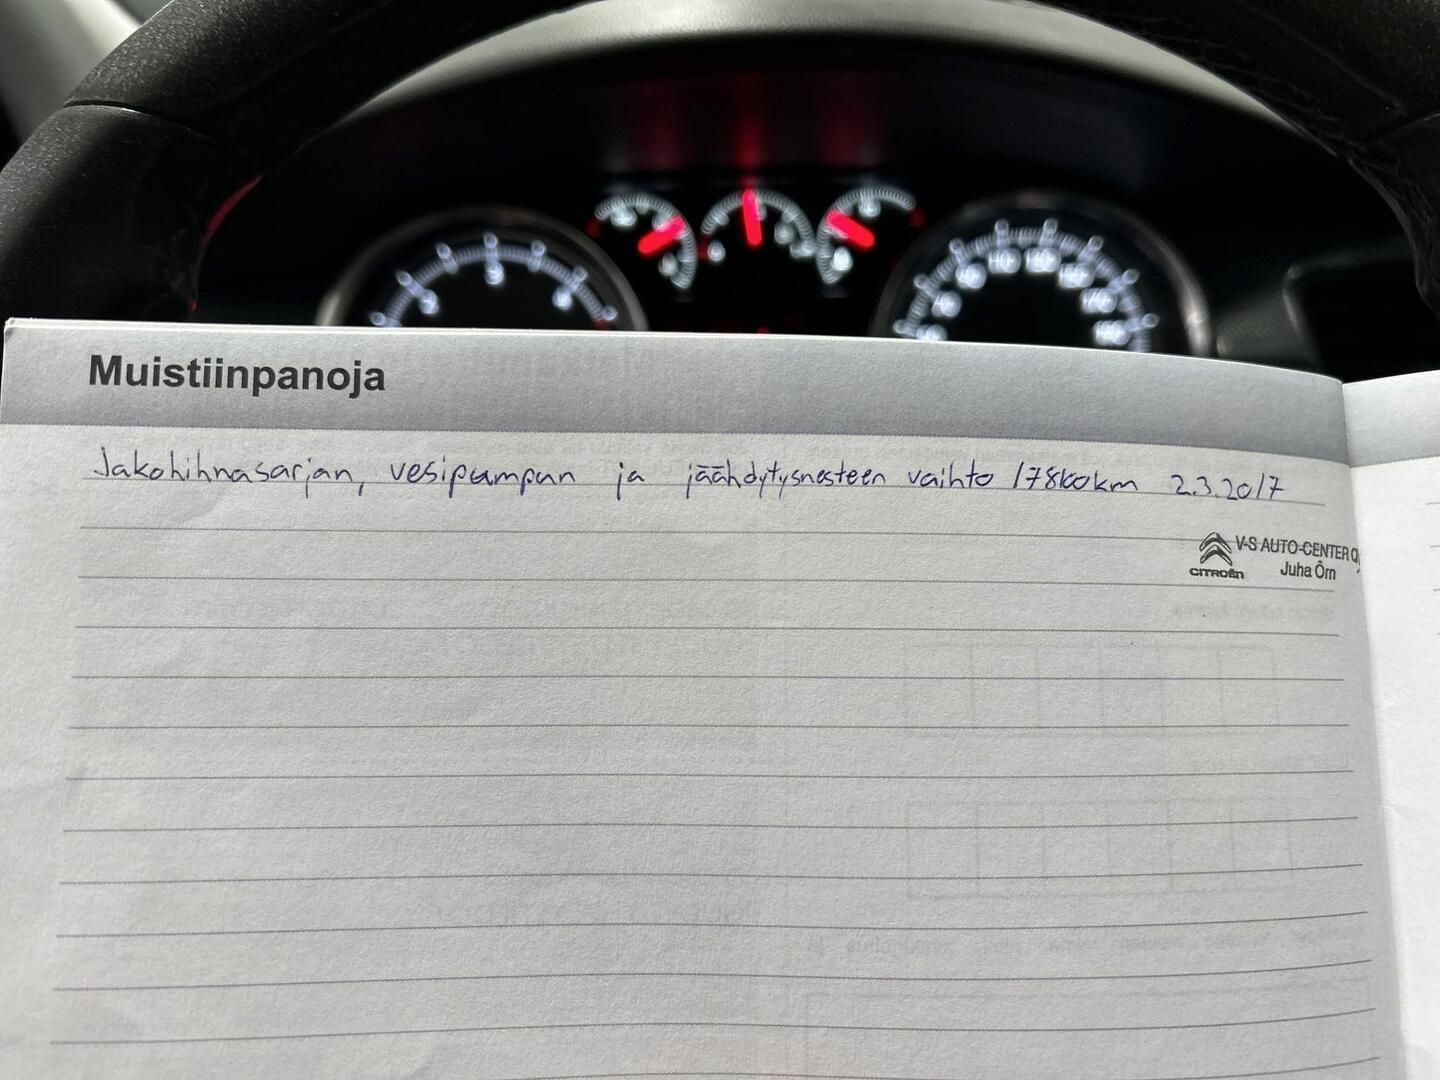 Muistiinpanoja
Jakohihnasarjan, vesipumpun ja jäähdytysnesteen vaihto 178100km 2.3.2017
V-S AUTO-CENTER Oy
CITROËN
Juha Örn